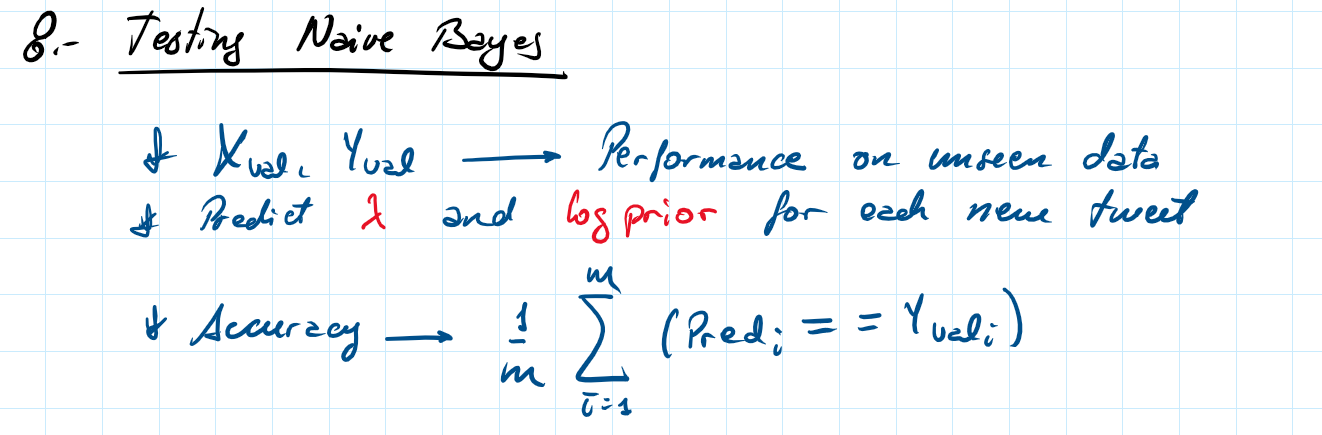 8.- Testing Naive Bayes
* Xval, Yval → Performance on unseen data
* Predict λ and log prior for each new tweet
* Accuracy → 1/m ∑_{i=1}^{m} (Pred_i == Y_val_i)